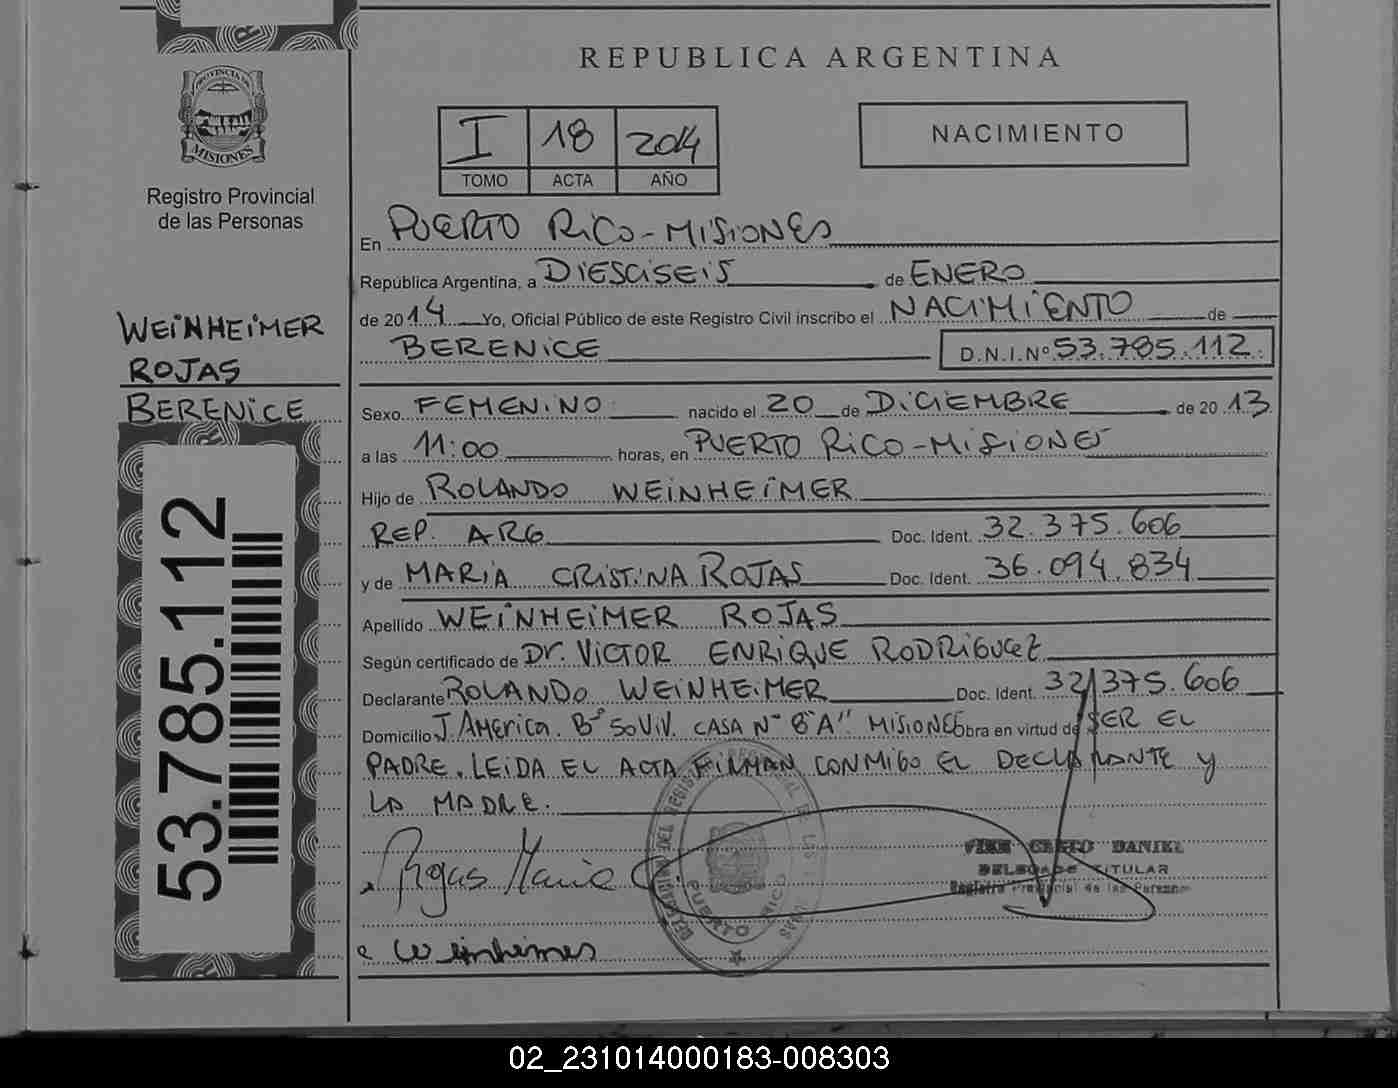 REPUBLICA ARGENTINA
PROVINCIA DE
MISIONES
Registro Provincial
de las Personas
I 18 2014
TOMO ACTA AÑO
NACIMIENTO
En PUERTO RICO-MISIONES
República Argentina, a DIESCISEIS de ENERO
de 2014 Yo, Oficial Público de este Registro Civil inscribo el NACIMIENTO de
BERENICE D.N.I.Nº 53.785.112
WEINHEIMER
ROJAS
BERENICE
53.785.112
Sexo FEMENINO nacido el 20 de DICIEMBRE de 2013
a las 11:00 horas, en PUERTO RICO-MISIONES
Hijo de ROLANDO WEINHEIMER
REP. ARG Doc. Ident. 32.375.606
y de MARIA CRISTINA ROJAS Doc. Ident. 36.094.834
Apellido WEINHEIMER ROJAS
Según certificado de Dr. VICTOR ENRIQUE RODRIGUEZ
Declarante ROLANDO WEINHEIMER Doc. Ident. 32.375.606
Domicilio J. America. Bº 50 Viv. CASA Nº 8 "A". MISIONES Obra en virtud de SER EL
PADRE. LEIDA EL ACTA FIRMAN CONMIGO EL DECLARANTE y
LA MADRE.
Rojas Maria C
DANIEL
DELEGADO TITULAR
Registro Provincial de las Personas
PUERTO RICO
02_231014000183-008303